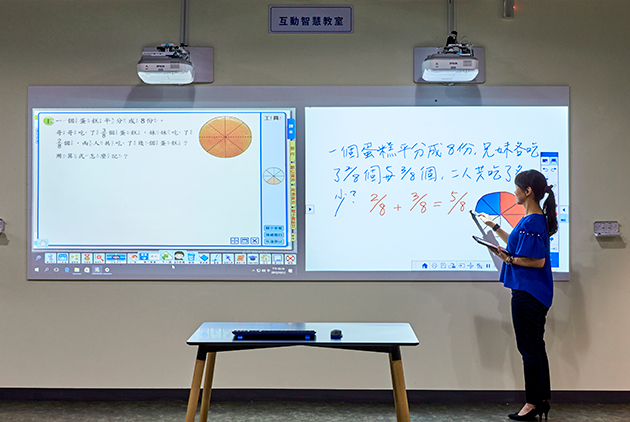 互動智慧教室
EPSON
EPSON
1 一個蛋糕平分成8份,
哥哥吃了3/8個蛋糕,妹妹吃了
2/8個蛋糕,兩人共吃了幾個蛋糕?
用算式怎麼記?
工具
一個蛋糕平分成8份,兄妹各吃
了2/8個與3/8個,二人共吃了多
少? 2/8 + 3/8 = 5/8